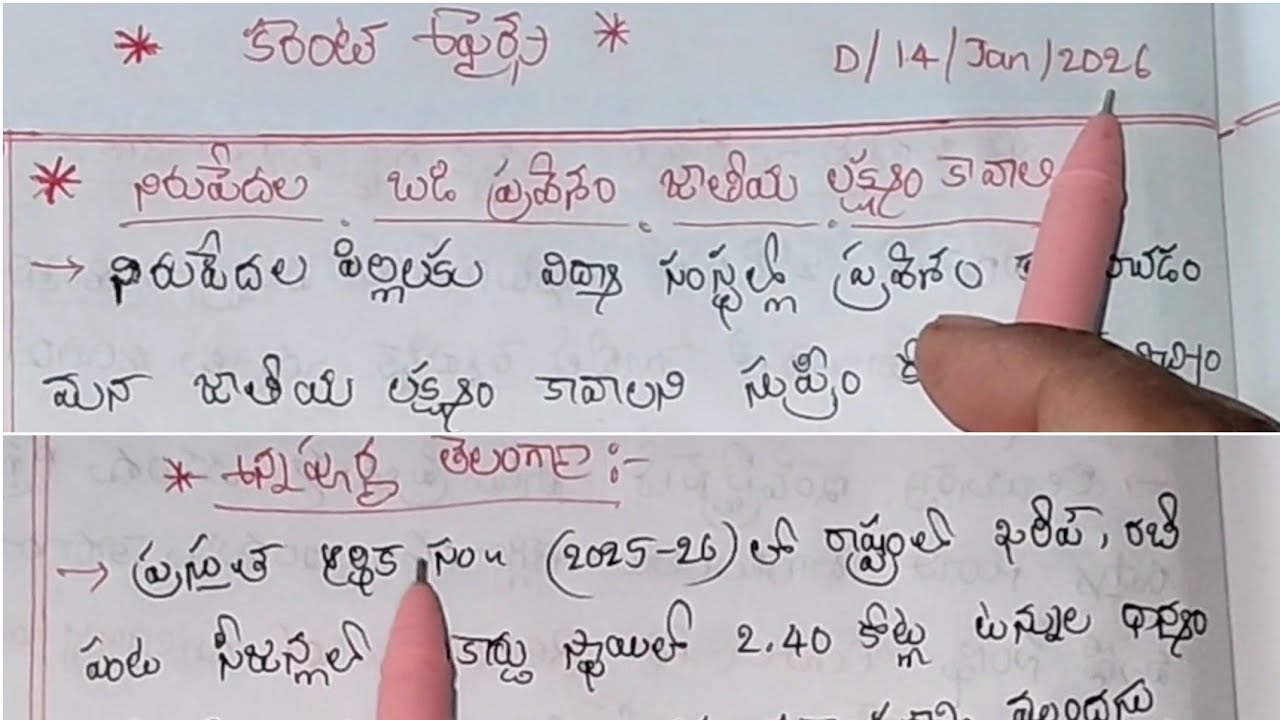 * కరెంట్ అఫైర్స్ *
D/14/Jan/2026
* నిరుపేదల బడి ప్రవేశం జాతీయ లక్ష్యం కావాలి
→ నిరుపేదల పిల్లలకు విద్యా సంస్థల్లో ప్రవేశం
మన జాతీయ లక్ష్యం కావాలని సుప్రీం
* అన్నపూర్ణ తెలంగాణ :-
→ ప్రస్తుత ఆర్థిక సం॥ (2025-26) లో రాష్ట్రంలో ఖరీఫ్, రబీ
పంట సీజన్లలో స్థాయిలో 2.40 కోట్ల టన్నుల ధాన్యం